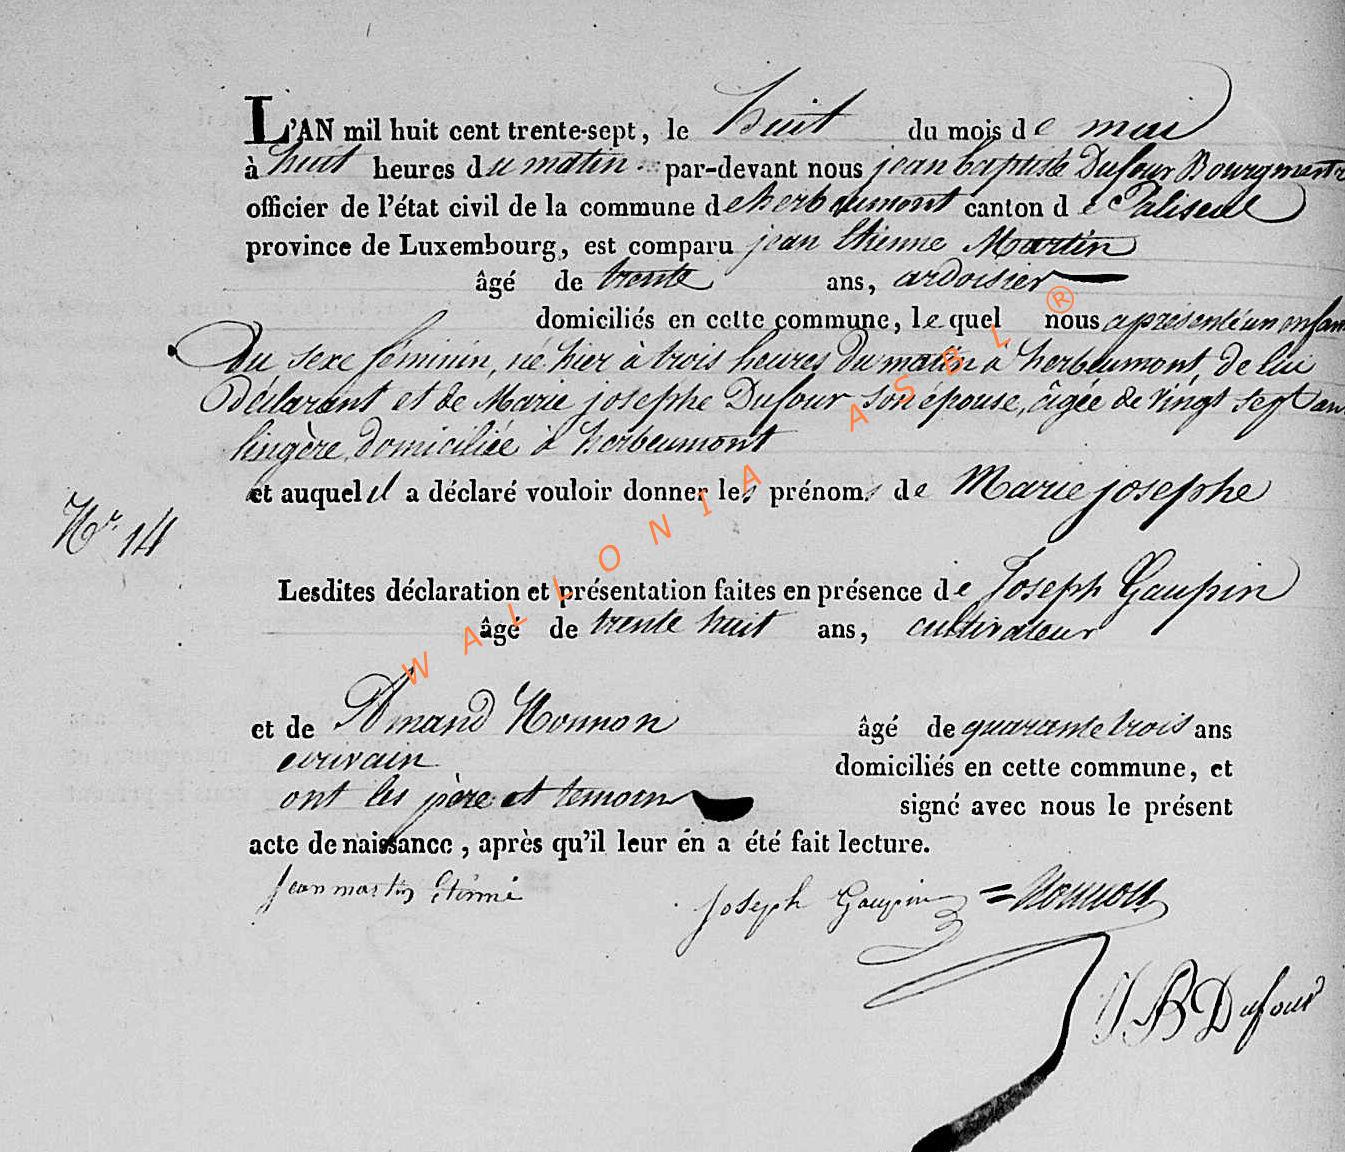 L'AN mil huit cent trente-sept, le huit du mois de mai
à huit heures du matin par-devant nous jean baptiste Dufour Bourgmestre
officier de l'état civil de la commune de herbeumont canton de Paliseul
province de Luxembourg, est comparu jean Etienne Martin
âgé de trente ans, ardoisier
domiciliés en cette commune, lequel nous a présenté un enfant
Du sexe féminin, né hier à trois heures Du matin à herbeumont, de lui
Déclarant et de Marie josephe Dufour son épouse, âgée de vingt sept ans
lingère domiciliée à herbeumont
et auquel il a déclaré vouloir donner les prénoms de Marie josephe
Nr. 14
Lesdites déclaration et présentation faites en présence de Joseph Gaupin
âgé de trente huit ans, cultivateur
et de Amand Nonnon âgé de quarante trois ans
ecrivain domiciliés en cette commune, et
ont les père et temoin signé avec nous le présent
acte de naissance, après qu'il leur en a été fait lecture.
jean martin Etinne
Joseph Gaupin = Nonnon
JB Dufour
WALLONIA ASBL ®